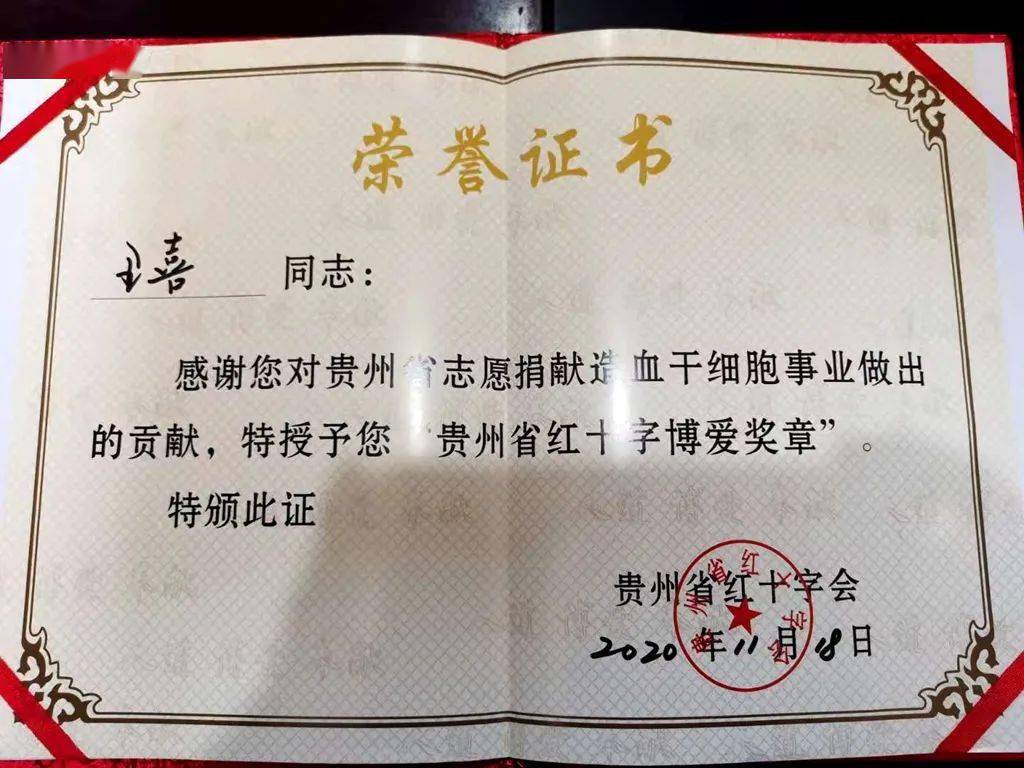 荣誉证书
王喜 同志：
感谢您对贵州省志愿捐献造血干细胞事业做出
的贡献，特授予您“贵州省红十字博爱奖章”。
特颁此证
贵州省红十字会
2020年11月18日
贵州省红十字会